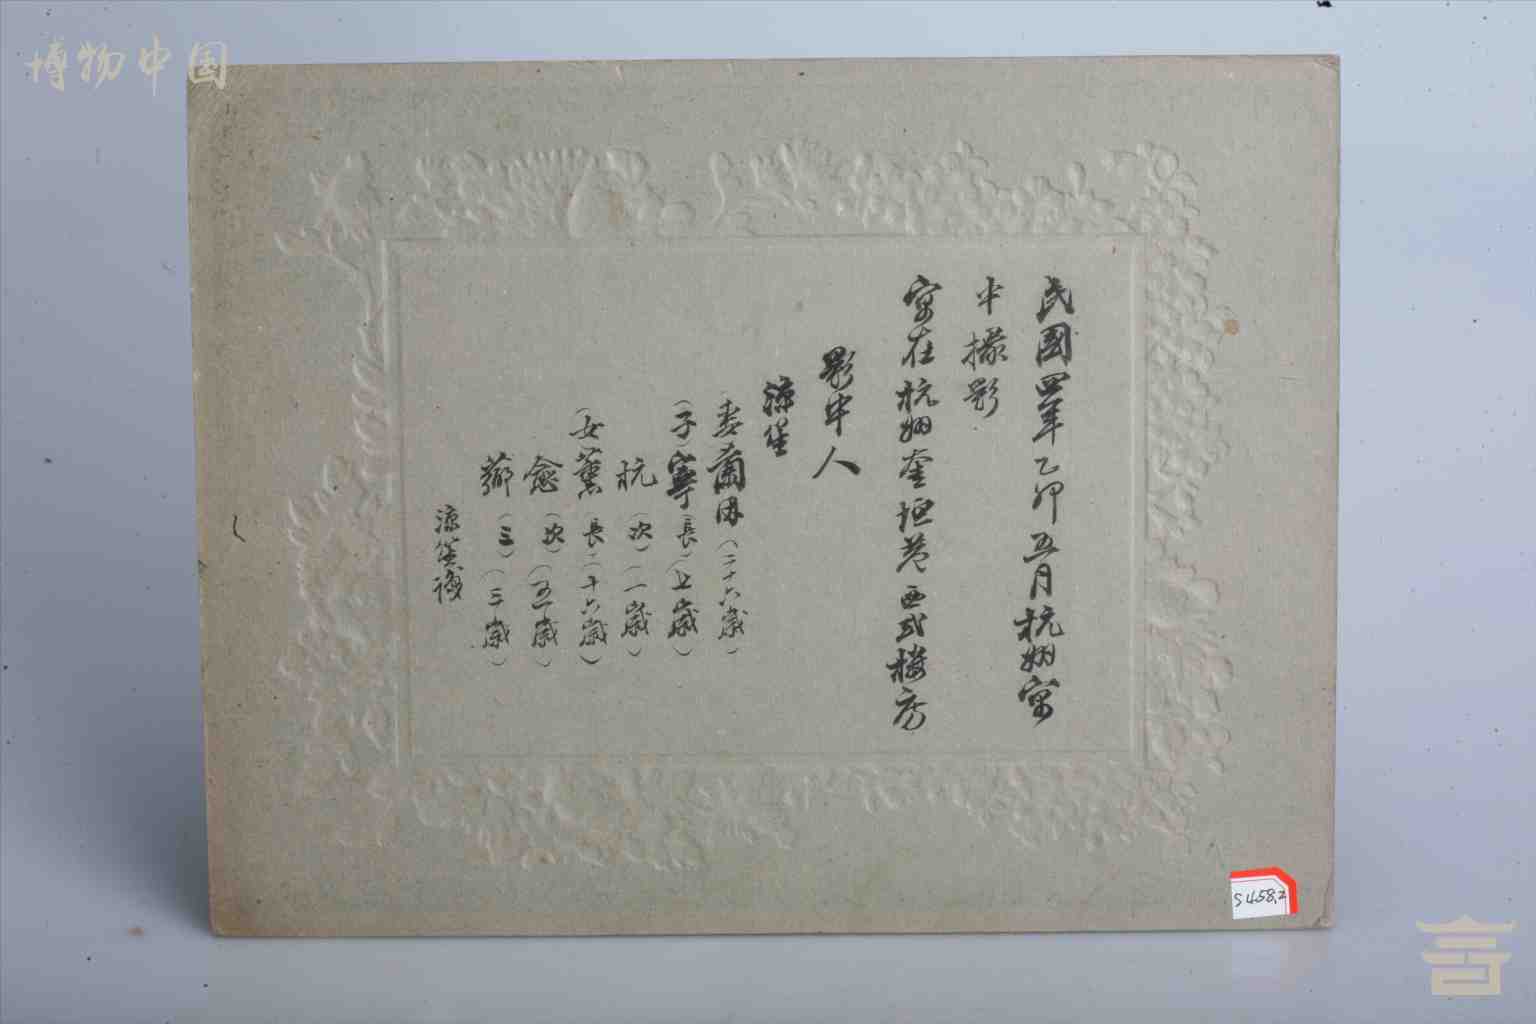 博物中国
民國四年乙卯五月杭州寓
中攝影
寓在杭州奎垣巷西式樓房
影中人
涼笙
妻蘭因(二十六歲)
(子)寧(長)(七歲)
杭(次)(一歲)
(女)薰(長)(十六歲)
愈(次)(五歲)
薌(三)(三歲)
涼笙識
S458.2